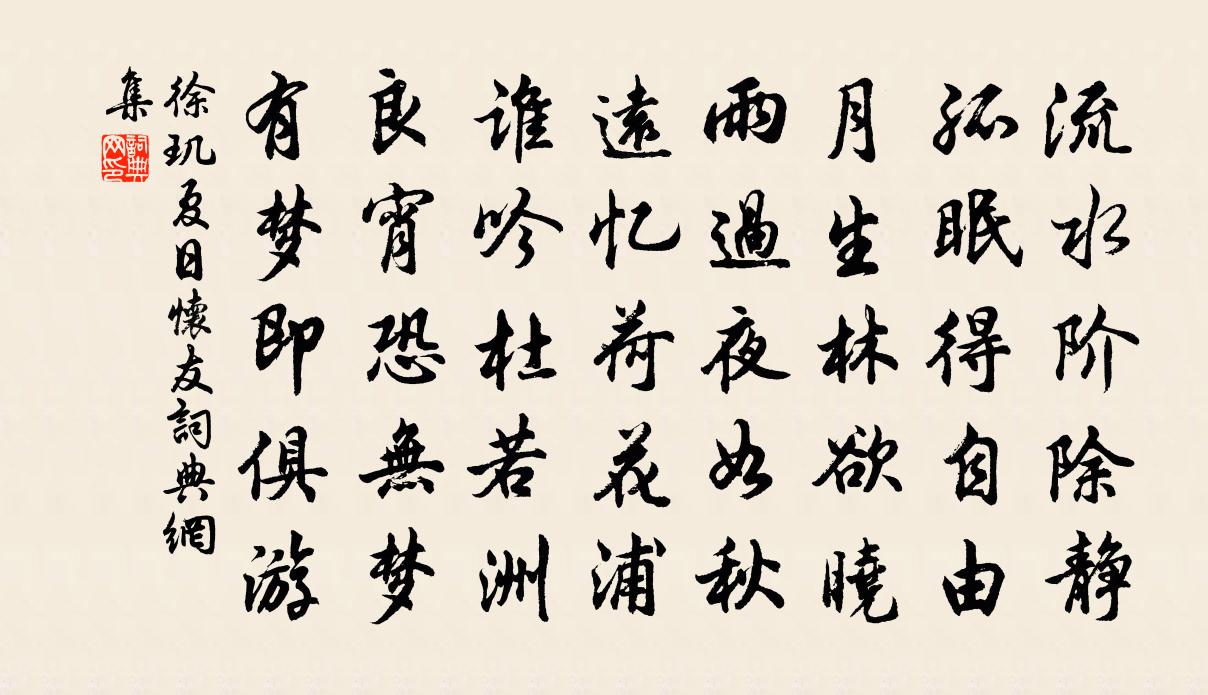 流水阶除静
孤眠得自由
月生林欲曉
雨過夜如秋
遠忆荷花浦
谁吟杜若洲
良宵恐無梦
有梦即俱游
徐玑夏日懷友詞典網
集
詞典網印